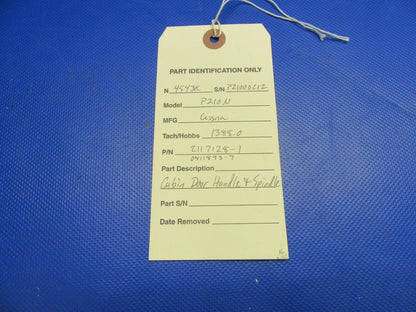 PART IDENTIFICATION ONLY
N 4543K S/N P21000212
Model P210N
MFG Cessna
Tach/Hobbs 1388.0
P/N 2117128-1
0411893-7
Part Description
Cabin Door Handle & Spindle
Part S/N
Date Removed